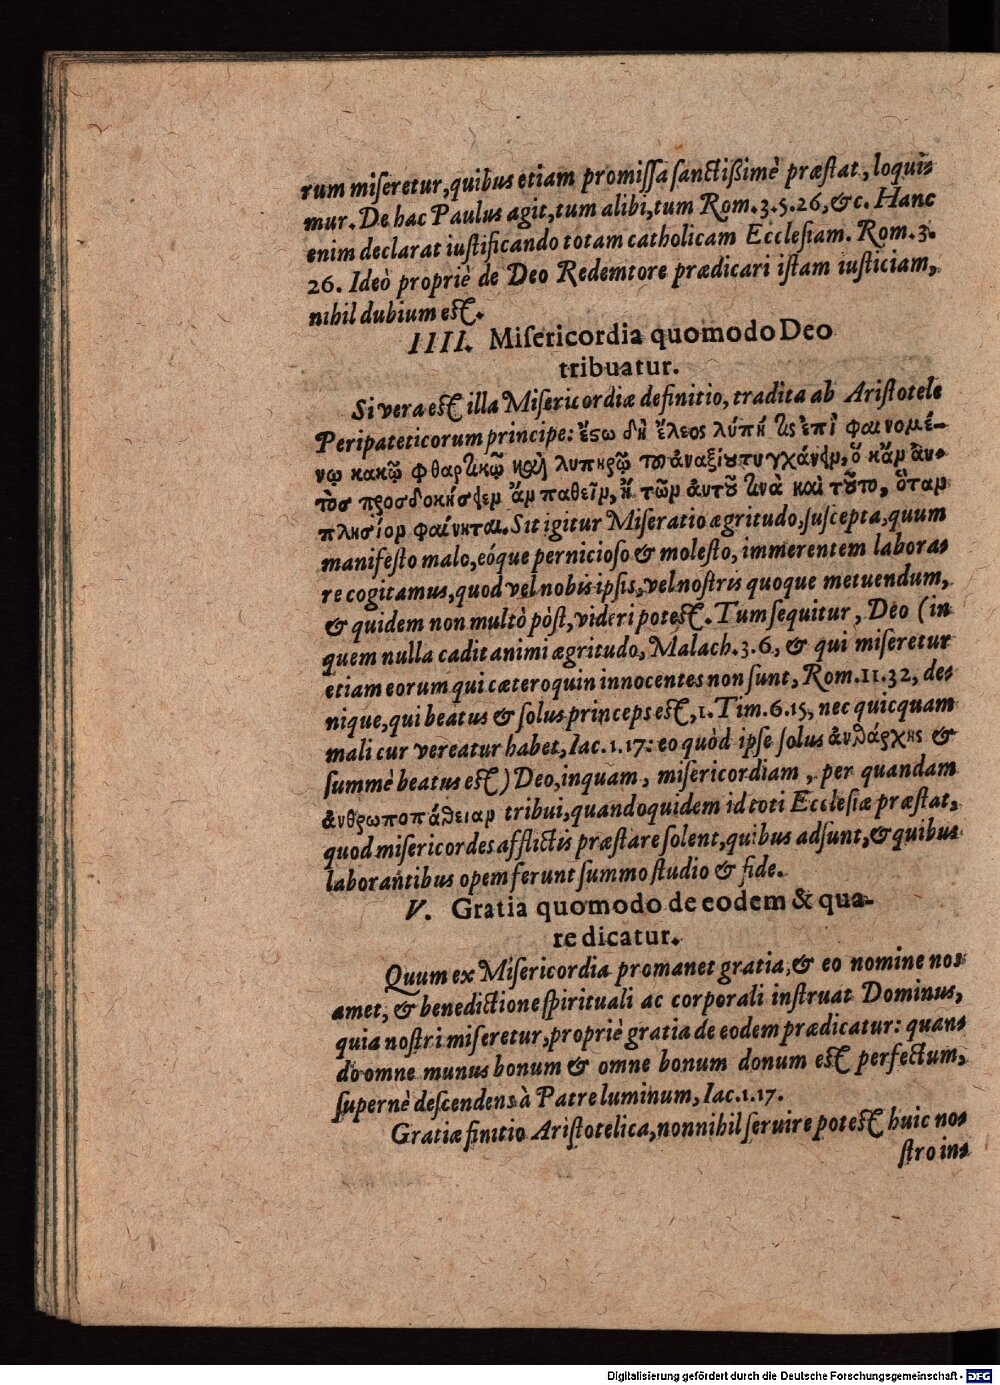 rum miſeretur, quibus etiam promiſſa ſanctißimè præſtat, loqui⸗
mur. De hac Paulus agit, tum alibi, tum Rom. 3. 5. 26, &c. Hanc
enim declarat iuſtificando totam catholicam Eccleſiam. Rom. 3.
26. Ideò propriè de Deo Redemtore prædicari iſtam iuſticiam,
nihil dubium eſt.
IIII. Miſericordia quomodo Deo
tribuatur.
Si vera eſt illa Miſericordiæ definitio, tradita ab Ariſtotele
Peripateticorum principe: ἔςω δὴ ἔλεος λύπη τις ἐπὶ φαινομέ-
νῳ κακῷ φθαρτικῷ καὶ λυπηρῷ τοῦ ἀναξίου τυγχάνειν, ὅ κἂν ἀυ⸗
τὸσ προσδοκήσειεν ἂν παθεῖν, ἢ τῶν ἀυτοῦ τινὰ καὶ τοῦτο, ὅταν
πλησίον φαίνηται. Sit igitur Miſeratio ægritudo, ſuſcepta, quum
manifeſto malo, eóque pernicioſo & moleſto, immerentem labora⸗
re cogitamus, quod vel nobis ipſis, vel noſtris quoque metuendum,
& quidem non multò pòſt, videri poteſt. Tum ſequitur, Deo (in
quem nulla cadit animi ægritudo, Malach. 3. 6, & qui miſeretur
etiam eorum qui cæteroquin innocentes non ſunt, Rom. 11. 32, de⸗
nique, qui beatus & ſolus princeps eſt, 1. Tim. 6. 15, nec quicquam
mali cur vereatur habet, Iac. 1. 17: eo quòd ipſe ſolus ἀυθάρχης &
ſummè beatus eſt) Deo, inquam, miſericordiam, per quandam
ἀνθρωποπάθειαν tribui, quandoquidem id toti Eccleſiæ præſtat,
quod miſericordes afflictis præſtare ſolent, quibus adſunt, & quibus
laborantibus opem ferunt ſummo ſtudio & fide.
V. Gratia quomodo de eodem & qua-
re dicatur.
Quum ex Miſericordia promanet gratia, & eo nomine nos
amet, & benedictione ſpirituali ac corporali inſtruat Dominus,
quia noſtri miſeretur, propriè gratia de eodem prædicatur: quan⸗
do omne munus bonum & omne bonum donum eſt perfectum,
ſupernè deſcendens à Patre luminum, Iac. 1. 17.
Gratiæ finitio Ariſtotelica, nonnihil ſeruire poteſt huic no⸗
ſtro in⸗
Digitalisierung gefördert durch die Deutsche Forschungsgemeinschaft - DFG